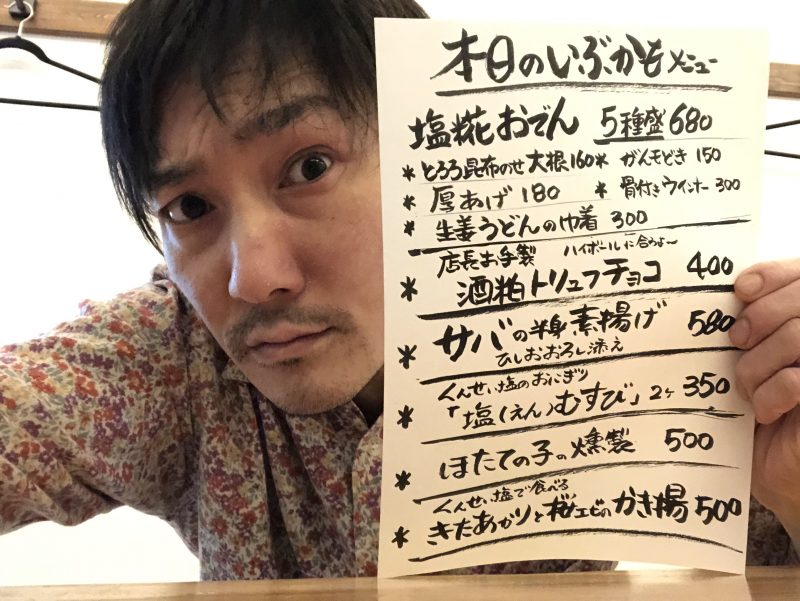 本日のいぶかもメニュー
塩糀おでん 5種盛680
* とろろ昆布のせ大根160 * がんもどき 150
* 厚あげ 180 * 骨付きウインナー 300
* 生姜うどんの巾着 300
店長お手製 ハイボールに合うよ～
* 酒粕トリュフチョコ 400
* サバの半身素揚げ 580
ひしおおろし添え
くんせい塩のおにぎり
* 「塩(えん)むすび」2ケ 350
* ほたての子の燻製 500
くんせい塩で食べる
* きたあかりと桜エビのかき揚 500